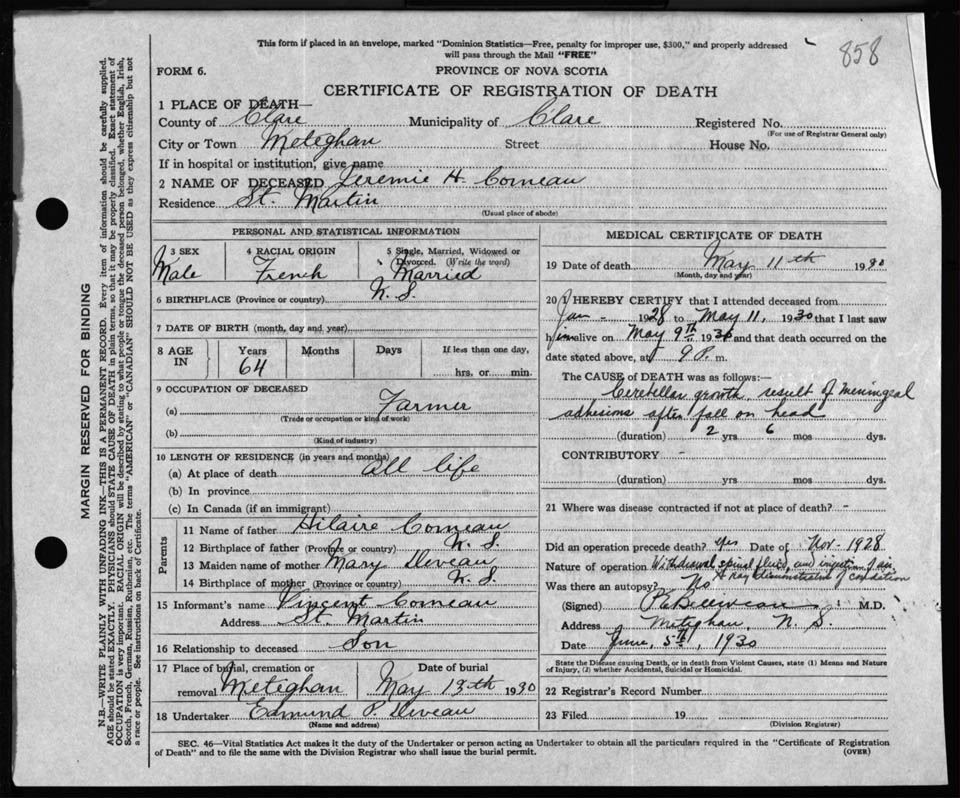 This form if placed in an envelope, marked "Dominion Statistics—Free, penalty for improper use, $300," and properly addressed
will pass through the Mail "FREE"
858
FORM 6.
PROVINCE OF NOVA SCOTIA
CERTIFICATE OF REGISTRATION OF DEATH
1 PLACE OF DEATH—
County of Clare Municipality of Clare Registered No.
(For use of Registrar General only)
City or Town Meteghan Street House No.
If in hospital or institution, give name
2 NAME OF DECEASED Jeremie H. Comeau
Residence St. Martin
(Usual place of abode)
PERSONAL AND STATISTICAL INFORMATION
3 SEX 4 RACIAL ORIGIN 5 Single, Married, Widowed or
Divorced. (Write the word)
Male French Married
6 BIRTHPLACE (Province or country) N. S.
7 DATE OF BIRTH (month, day and year)
8 AGE IN Years Months Days If less than one day,
64 hrs. or min.
9 OCCUPATION OF DECEASED
(a) Farmer
(Trade or occupation or kind of work)
(b)
(Kind of industry)
10 LENGTH OF RESIDENCE (in years and months)
(a) At place of death All life
(b) In province
(c) In Canada (if an immigrant)
Parents
11 Name of father Hilaire Comeau
12 Birthplace of father (Province or country) N. S.
13 Maiden name of mother Mary Deveau
14 Birthplace of mother (Province or country) N. S.
15 Informant's name Vincent Comeau
Address St. Martin
16 Relationship to deceased Son
17 Place of burial, cremation or Date of burial
removal Meteghan May 13th 1930
18 Undertaker Edmund P. Deveau
(Name and address)
MEDICAL CERTIFICATE OF DEATH
19 Date of death May 11th 1930
(Month, day and year)
20 I HEREBY CERTIFY that I attended deceased from
Jan - 1928 to May 11, 1930 that I last saw
him alive on May 9th 1930 and that death occurred on the
date stated above, at 9 P. m.
The CAUSE of DEATH was as follows:—
Cerebellar growth, result of meningeal
adhesions after fall on head
(duration) 2 yrs 6 mos dys.
CONTRIBUTORY -
(duration) yrs. mos dys.
21 Where was disease contracted if not at place of death? -
Did an operation precede death? Yes Date of Nov - 1928
Nature of operation Withdrawal spinal fluid, and injection of air.
X ray demonstrated condition
Was there an autopsy? No
(Signed) M.D.
Address Meteghan, N. S.
Date June, 5th, 1930
State the Disease causing Death, or in death from Violent Causes, state (1) Means and Nature
of Injury, (2) whether Accidental, Suicidal or Homicidal.
22 Registrar's Record Number
23 Filed 19
(Division Registrar)
SEC. 46—Vital Statistics Act makes it the duty of the Undertaker or person acting as Undertaker to obtain all the particulars required in the "Certificate of Registration
of Death" and to file the same with the Division Registrar who shall issue the burial permit. (OVER)
MARGIN RESERVED FOR BINDING
N.B.—WRITE PLAINLY WITH UNFADING INK—THIS IS A PERMANENT RECORD. Every item of information should be carefully supplied.
AGE should be stated EXACTLY. PHYSICIANS should STATE CAUSE OF DEATH in plain terms, so that it may be properly classified. Exact statement of
OCCUPATION is very important. RACIAL ORIGIN will be described by stating to what people or tongue the deceased person belonged, whether English, Irish,
Scotch, French, German, Russian, Ruthenian, etc. The terms "AMERICAN" or "CANADIAN" SHOULD NOT BE USED as they express citizenship but not
a race or people. See instructions on back of Certificate.